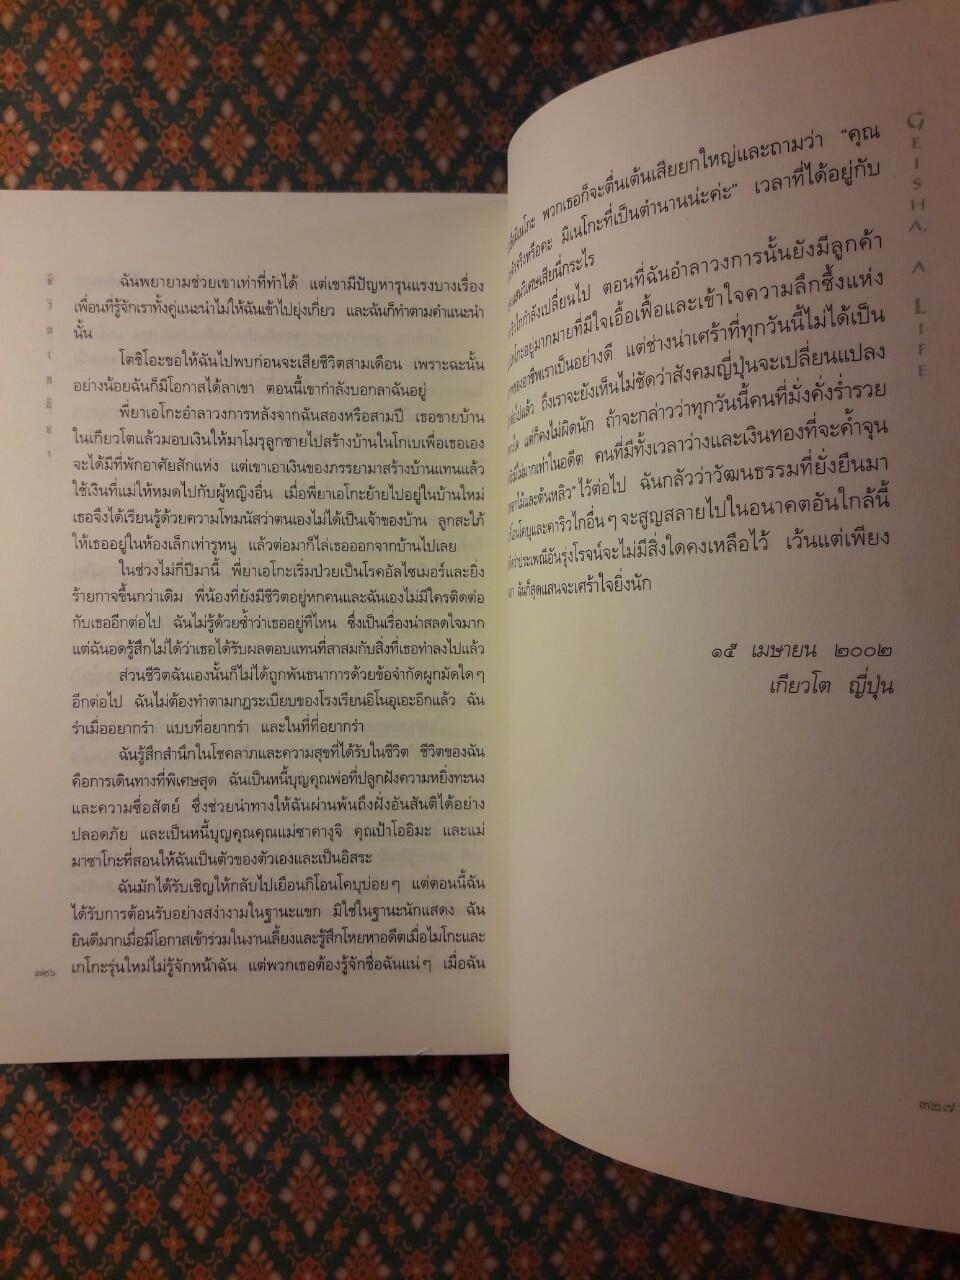 ฉันพยายามช่วยเขาเท่าที่ทำได้ แต่เขามีปัญหารุนแรงบางเรื่อง
เพื่อนที่รู้จักเราทั้งคู่แนะนำไม่ให้ฉันเข้าไปยุ่งเกี่ยว และฉันก็ทำตามคำแนะนำ
นั้น
โตชิโอะขอให้ฉันไปพบก่อนจะเสียชีวิตสามเดือน เพราะฉะนั้น
อย่างน้อยฉันก็มีโอกาสได้ลาเขา ตอนนี้เขากำลังบอกลาฉันอยู่
พี่ยาเอโกะอำลาวงการหลังจากฉันสองหรือสามปี เธอขายบ้าน
ในเกียวโตแล้วมอบเงินให้มาโมรุลูกชายไปสร้างบ้านในโกเบเพื่อเธอเอง
จะได้มีที่พักอาศัยสักแห่ง แต่เขาเอาเงินของภรรยามาสร้างบ้านแทนแล้ว
ใช้เงินที่แม่ให้หมดไปกับผู้หญิงอื่น เมื่อพี่ยาเอโกะย้ายไปอยู่ในบ้านใหม่
เธอจึงได้เรียนรู้ด้วยความโทมนัสว่าตนเองไม่ได้เป็นเจ้าของบ้าน ลูกสะใภ้
ให้เธออยู่ในห้องเล็กเท่ารูหนู แล้วต่อมาก็ไล่เธอออกจากบ้านไปเลย
ในช่วงไม่กี่ปีมานี้ พี่ยาเอโกะเริ่มป่วยเป็นโรคอัลไซเมอร์และยิ่ง
ร้ายกาจขึ้นกว่าเดิม พี่น้องที่ยังมีชีวิตอยู่หกคนและฉันเองไม่มีใครติดต่อ
กับเธออีกต่อไป ฉันไม่รู้ด้วยซ้ำว่าเธออยู่ที่ไหน ซึ่งเป็นเรื่องน่าสลดใจมาก
แต่ฉันอดรู้สึกไม่ได้ว่าเธอได้รับผลตอบแทนที่สาสมกับสิ่งที่เธอทำลงไปแล้ว
ส่วนชีวิตฉันเองนั้นก็ไม่ได้ถูกพันธนาการด้วยข้อจำกัดผูกมัดใดๆ
อีกต่อไป ฉันไม่ต้องทำตามกฎระเบียบของโรงเรียนอิโนอุเอะอีกแล้ว ฉัน
รำเมื่ออยากรำ แบบที่อยากรำ และในที่ที่อยากรำ
ฉันรู้สึกสำนึกในโชคลาภและความสุขที่ได้รับในชีวิต ชีวิตของฉัน
คือการเดินทางที่พิเศษสุด ฉันเป็นหนี้บุญคุณพ่อที่ปลูกฝังความหยิ่งทะนง
และความซื่อสัตย์ ซึ่งช่วยนำทางให้ฉันผ่านพ้นถึงฝั่งอันสันติได้อย่าง
ปลอดภัย และเป็นหนี้บุญคุณคุณแม่ซาคางุจิ คุณป้าโออิมะ และแม่
มาซาโกะที่สอนให้ฉันเป็นตัวของตัวเองและเป็นอิสระ
ฉันมักได้รับเชิญให้กลับไปเยือนกิโอนโคบุบ่อยๆ แต่ตอนนี้ฉัน
ได้รับการต้อนรับอย่างสง่างามในฐานะแขก มิใช่ในฐานะนักแสดง ฉัน
ยินดีมากเมื่อมีโอกาสเข้าร่วมในงานเลี้ยงและรู้สึกโหยหาอดีตเมื่อไมโกะและ
เกโกะรุ่นใหม่ไม่รู้จักหน้าฉัน แต่พวกเธอต้องรู้จักชื่อฉันแน่ๆ เมื่อฉัน
๓๒๖
พวกเธอก็จะตื่นเต้นเสียยกใหญ่และถามว่า "คุณ
จริงหรือคะ มิเนโกะที่เป็นตำนานน่ะค่ะ" เวลาที่ได้อยู่กับ
เสียนี่กระไร
กำลังเปลี่ยนไป ตอนที่ฉันอำลาวงการนั้นยังมีลูกค้า
อยู่มากมายที่มีใจเอื้อเฟื้อและเข้าใจความลึกซึ้งแห่ง
อาชีพเราเป็นอย่างดี แต่ช่างน่าเศร้าที่ทุกวันนี้ไม่ได้เป็น
ไปแล้ว ถึงเราจะยังเห็นไม่ชัดว่าสังคมญี่ปุ่นจะเปลี่ยนแปลง
แต่ก็คงไม่ผิดนัก ถ้าจะกล่าวว่าทุกวันนี้คนที่มั่งคั่งร่ำรวย
ไม่มากเท่าในอดีต คนที่มีทั้งเวลาว่างและเงินทองที่จะค้ำจุน
และต้นหลิว" ไว้ต่อไป ฉันกลัวว่าวัฒนธรรมที่ยั่งยืนมา
และคาริวไกอื่นๆ จะสูญสลายไปในอนาคตอันใกล้นี้
ประเพณีอันรุ่งโรจน์จะไม่มีสิ่งใดคงเหลือไว้ เว้นแต่เพียง
ฉันก็สุดแสนจะเศร้าใจยิ่งนัก
๑๕ เมษายน ๒๐๐๒
เกียวโต ญี่ปุ่น
GEISHA, A LIFE
๓๒๗